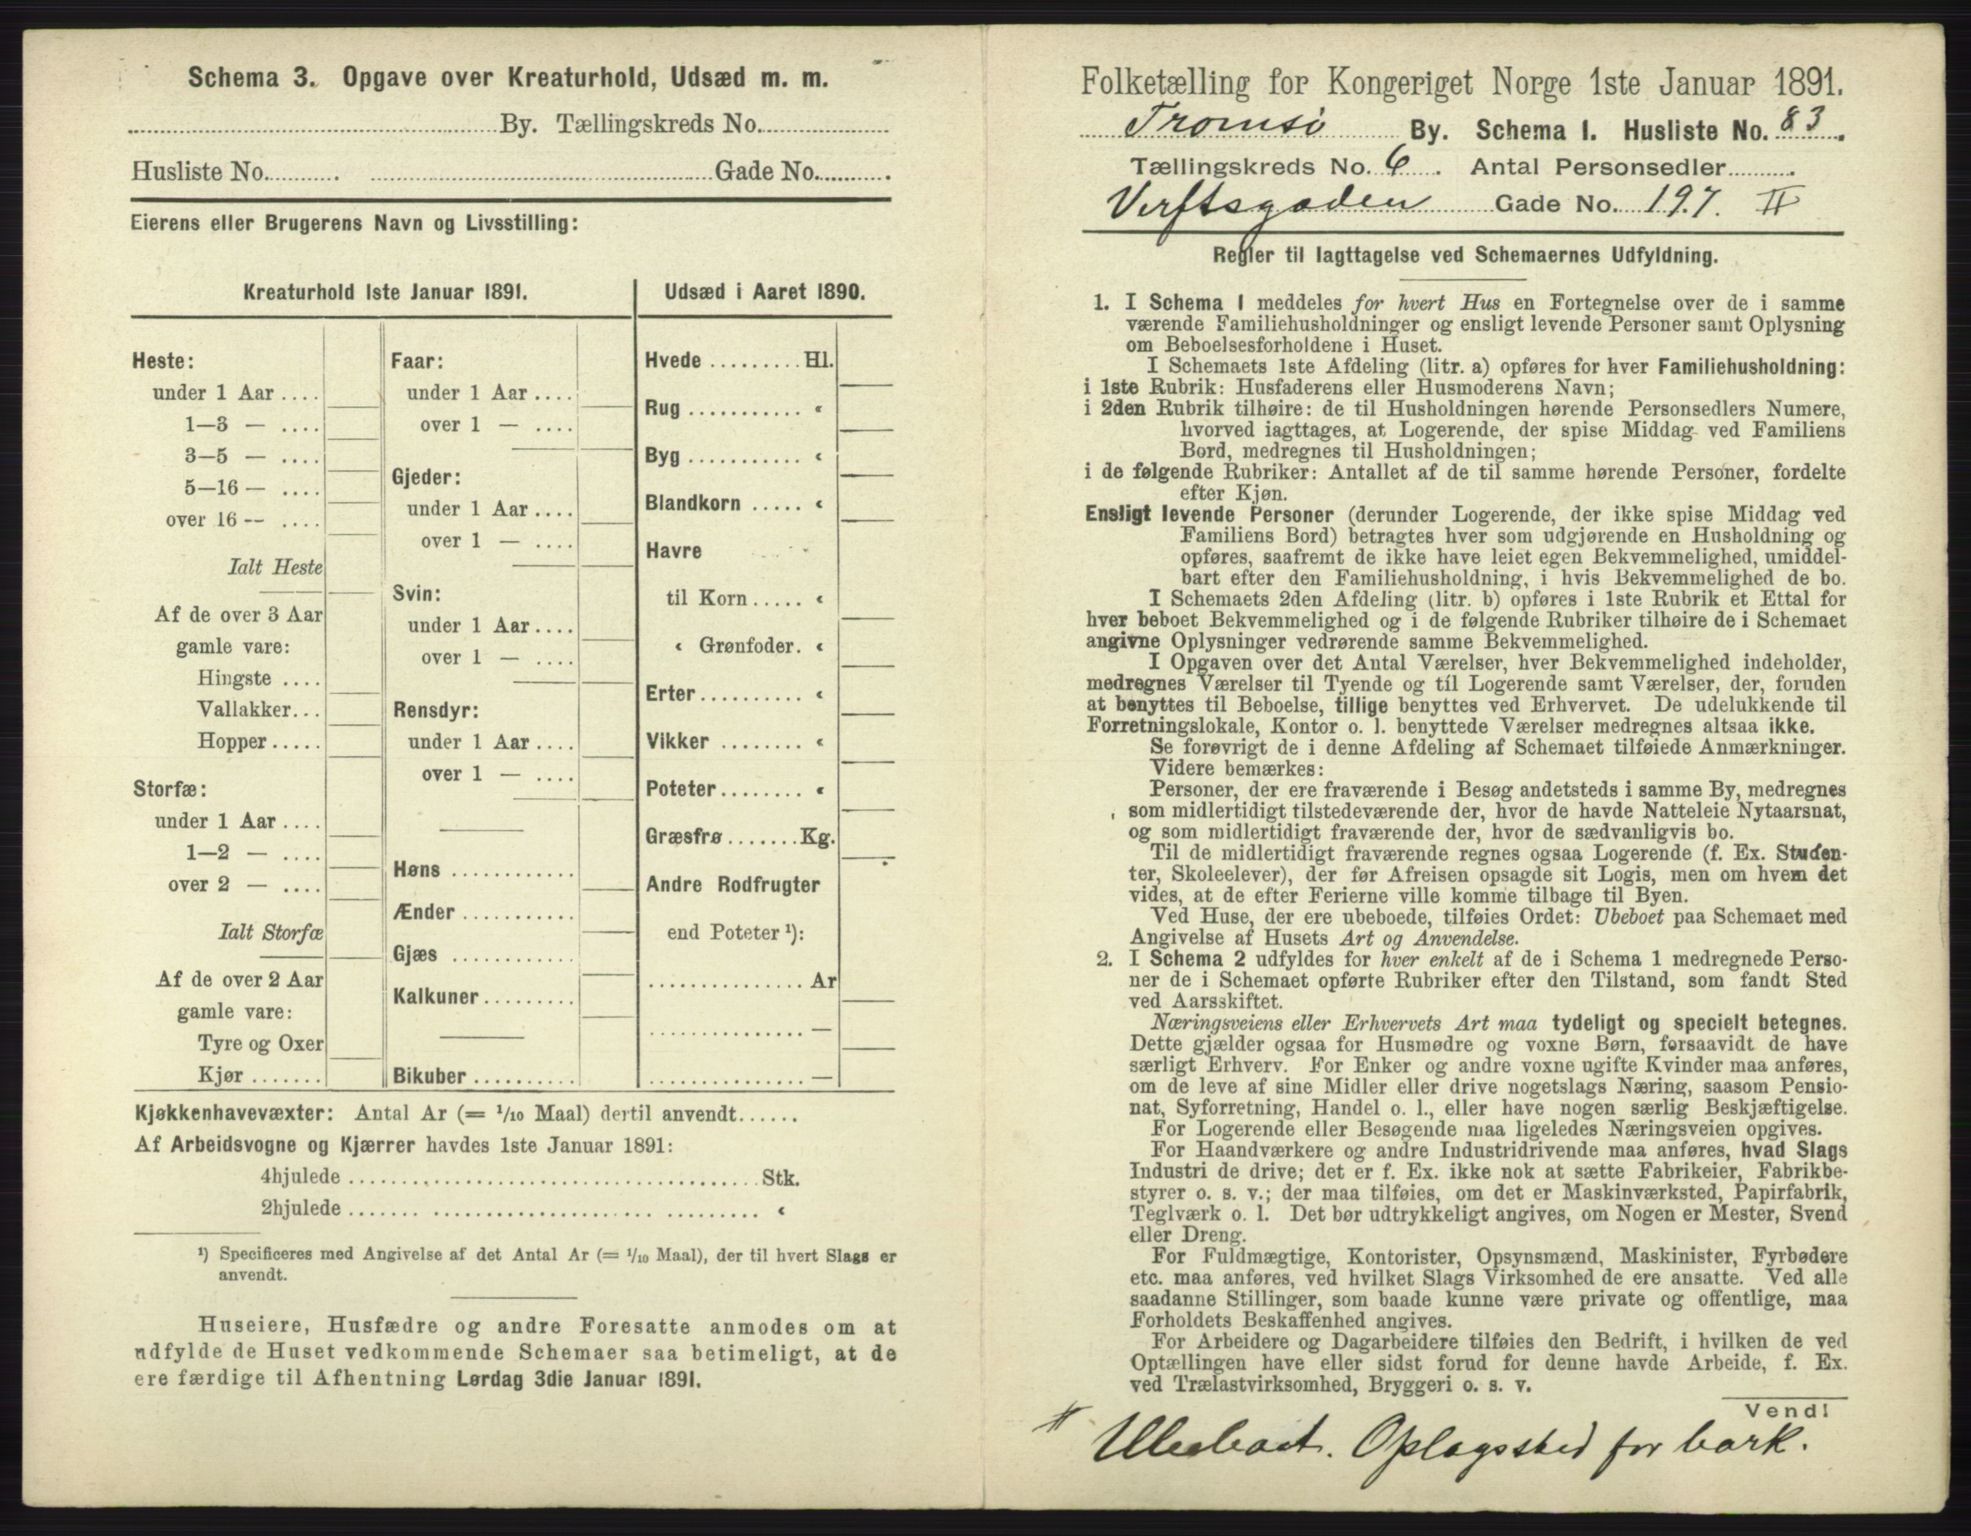 Schema 3. Opgave over Kreaturhold, Udsæd m. m.
By. Tællingskreds No.
Husliste No. Gade No.
Eierens eller Brugerens Navn og Livsstilling:
Kreaturhold 1ste Januar 1891.
Heste:
under 1 Aar ....
1—3 — ....
3—5 — ....
5—16 — ....
over 16 -- ....
Ialt Heste
Af de over 3 Aar
gamle vare:
Hingste ....
Vallakker...
Hopper.....
Storfæ:
under 1 Aar ....
1—2 — ....
over 2 — ....
Ialt Storfæ
Af de over 2 Aar
gamle vare:
Tyre og Oxer
Kjør.......
Faar:
under 1 Aar ....
over 1 — ....
Gjeder:
under 1 Aar ....
over 1 — ....
Svin:
under 1 Aar ....
over 1 — ....
Rensdyr:
under 1 Aar ....
over 1 — ....
Høns ............
Ænder ...........
Gjæs ............
Kalkuner.........
Bikuber ..........
Udsæd i Aaret 1890.
Hvede ......... Hl.
Rug ........... «
Byg ........... «
Blandkorn ..... «
Havre
til Korn..... «
« Grønfoder. «
Erter.......... «
Vikker ........ «
Poteter........ «
Græsfrø.......Kg.
Andre Rodfrugter
end Poteter ¹):
............... Ar
...............—
...............—
Kjøkkenhavevæxter: Antal Ar (= 1/10 Maal) dertil anvendt......
Af Arbeidsvogne og Kjærrer havdes 1ste Januar 1891:
4hjulede ........................................ Stk.
2hjulede ........................................ «
¹) Specificeres med Angivelse af det Antal Ar (= 1/10 Maal), der til hvert Slags er
anvendt.
Huseiere, Husfædre og andre Foresatte anmodes om at
udfylde de Huset vedkommende Schemaer saa betimeligt, at de
ere færdige til Afhentning Lørdag 3die Januar 1891.
Folketælling for Kongeriget Norge 1ste Januar 1891.
Tromsö By. Schema 1. Husliste No. 83.
Tællingskreds No. 6. Antal Personsedler
Verftsgaden Gade No. 197. II
Regler til Iagttagelse ved Schemaernes Udfyldning.
1. I Schema 1 meddeles for hvert Hus en Fortegnelse over de i samme
værende Familiehusholdninger og ensligt levende Personer samt Oplysning
om Beboelsesforholdene i Huset.
I Schemaets 1ste Afdeling (litr. a) opføres for hver Familiehusholdning:
i 1ste Rubrik: Husfaderens eller Husmoderens Navn;
i 2den Rubrik tilhøire: de til Husholdningen hørende Personsedlers Numere,
hvorved iagttages, at Logerende, der spise Middag ved Familiens
Bord, medregnes til Husholdningen;
i de følgende Rubriker: Antallet af de til samme hørende Personer, fordelte
efter Kjøn.
Ensligt levende Personer (derunder Logerende, der ikke spise Middag ved
Familiens Bord) betragtes hver som udgjørende en Husholdning og
opføres, saafremt de ikke have leiet egen Bekvemmelighed, umiddel-
bart efter den Familiehusholdning, i hvis Bekvemmelighed de bo.
I Schemaets 2den Afdeling (litr. b) opføres i 1ste Rubrik et Ettal for
hver beboet Bekvemmelighed og i de følgende Rubriker tilhøire de i Schemaet
angivne Oplysninger vedrørende samme Bekvemmelighed.
I Opgaven over det Antal Værelser, hver Bekvemmelighed indeholder,
medregnes Værelser til Tyende og til Logerende samt Værelser, der, foruden
at benyttes til Beboelse, tillige benyttes ved Erhvervet. De udelukkende til
Forretningslokale, Kontor o. l. benyttede Værelser medregnes altsaa ikke.
Se forøvrigt de i denne Afdeling af Schemaet tilføiede Anmærkninger.
Videre bemærkes:
Personer, der ere fraværende i Besøg andetsteds i samme By, medregnes
som midlertidigt tilstedeværende der, hvor de havde Natteleie Nytaarsnat,
og som midlertidigt fraværende der, hvor de sædvanligvis bo.
Til de midlertidigt fraværende regnes ogsaa Logerende (f. Ex. Studen-
ter, Skoleelever), der før Afreisen opsagde sit Logis, men om hvem det
vides, at de efter Ferierne ville komme tilbage til Byen.
Ved Huse, der ere ubeboede, tilføies Ordet: Ubeboet paa Schemaet med
Angivelse af Husets Art og Anvendelse.
2. I Schema 2 udfyldes for hver enkelt af de i Schema 1 medregnede Perso-
ner de i Schemaet opførte Rubriker efter den Tilstand, som fandt Sted
ved Aarsskiftet.
Næringsveiens eller Erhvervets Art maa tydeligt og specielt betegnes.
Dette gjælder ogsaa for Husmødre og voxne Børn, forsaavidt de have
særligt Erhverv. For Enker og andre voxne ugifte Kvinder maa anføres,
om de leve af sine Midler eller drive nogetslags Næring, saasom Pensio-
nat, Syforretning, Handel o. l., eller have nogen særlig Beskjæftigelse.
For Logerende eller Besøgende maa ligeledes Næringsveien opgives.
For Haandværkere og andre Industridrivende maa anføres, hvad Slags
Industri de drive; det er f. Ex. ikke nok at sætte Fabrikeier, Fabrikbe-
styrer o. s. v.; der maa tilføies, om det er Maskinværksted, Papirfabrik,
Teglværk o. l. Det bør udtrykkeligt angives, om Nogen er Mester, Svend
eller Dreng.
For Fuldmægtige, Kontorister, Opsynsmænd, Maskinister, Fyrbødere
etc. maa anføres, ved hvilket Slags Virksomhed de ere ansatte. Ved alle
saadanne Stillinger, som baade kunne være private og offentlige, maa
Forholdets Beskaffenhed angives.
For Arbeidere og Dagarbeidere tilføies den Bedrift, i hvilken de ved
Optællingen have eller sidst forud for denne havde Arbeide, f. Ex.
ved Trælastvirksomhed, Bryggeri o. s. v.
Vend!
Ubeboet. Oplagssted for bark.